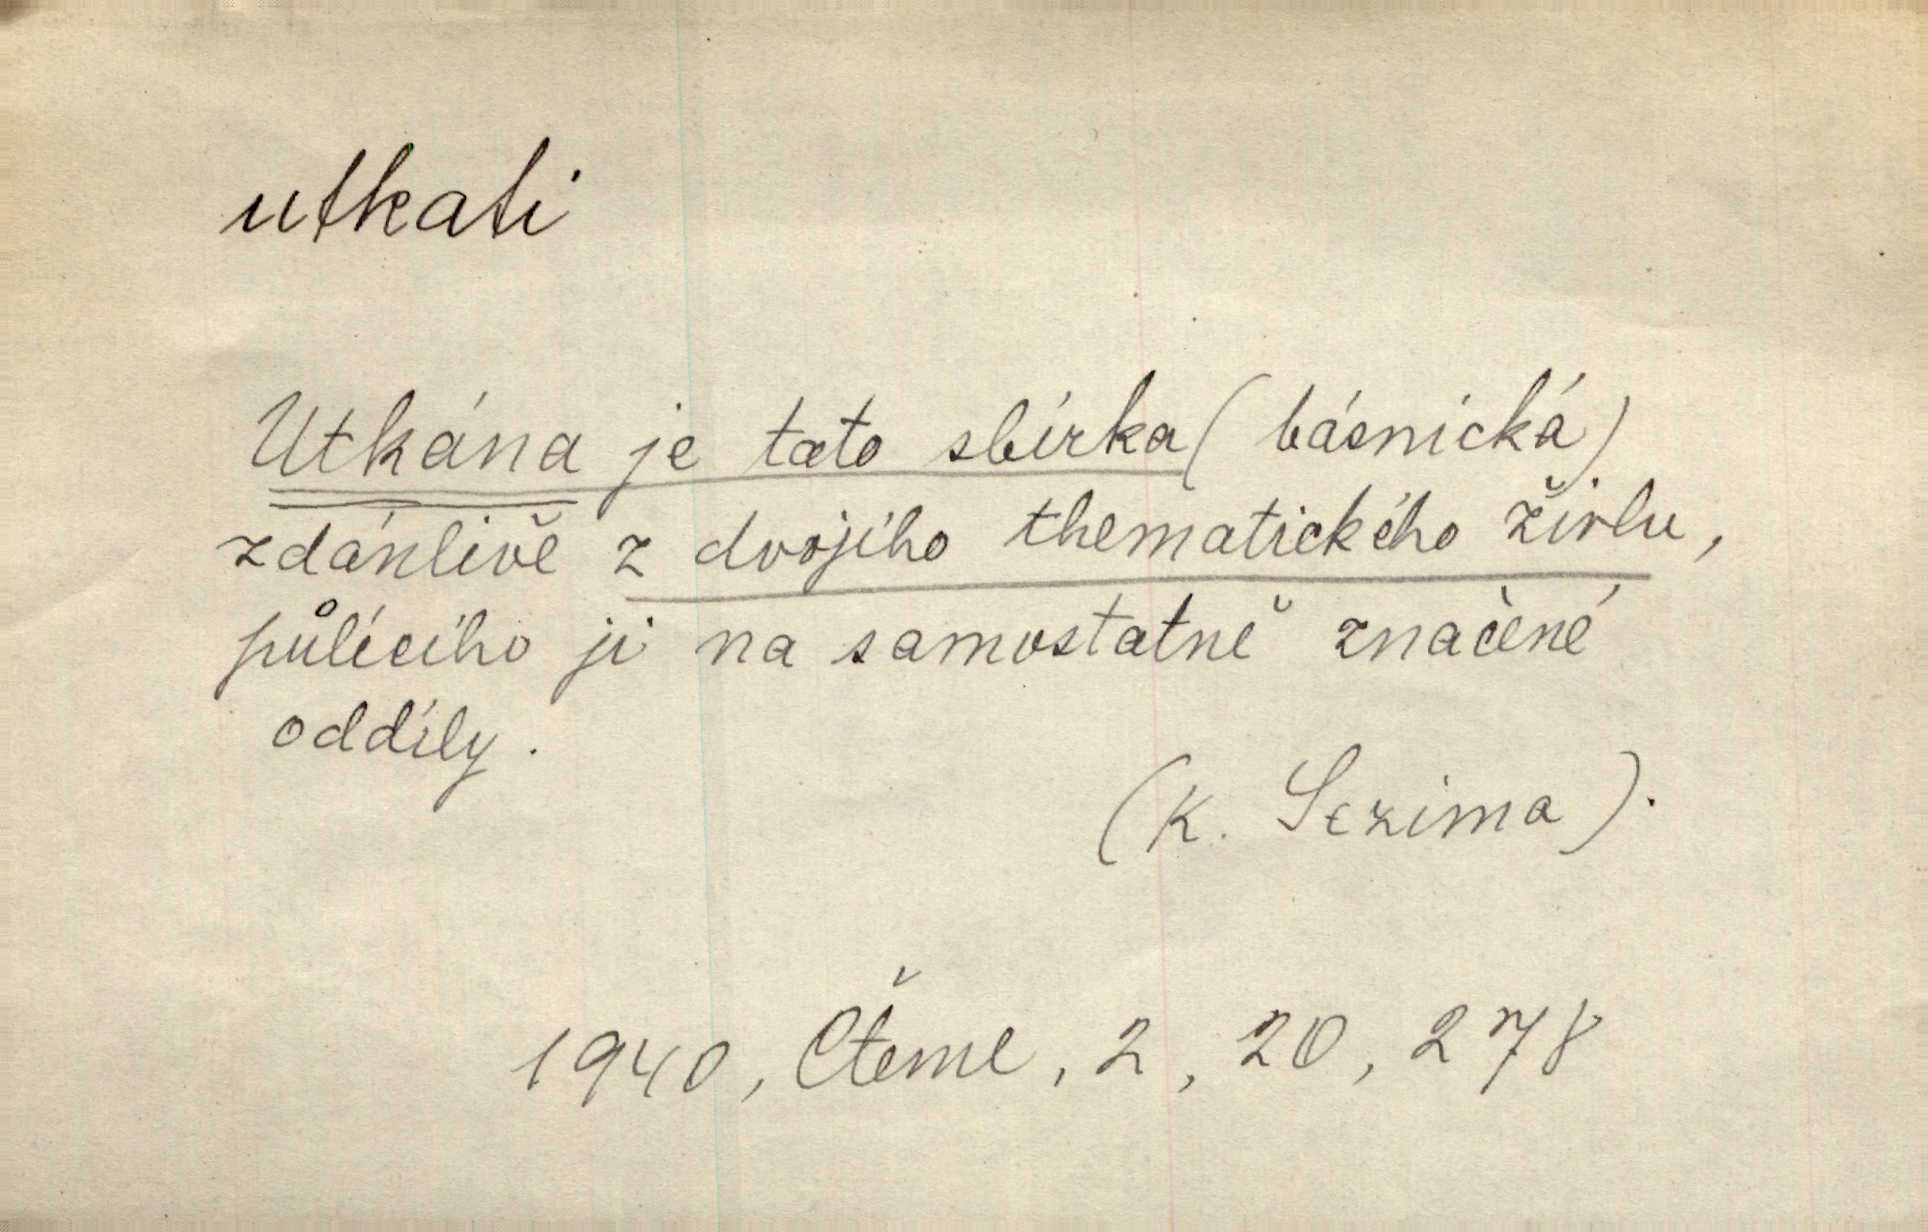 utkati
Utkána je tato sbírka (básnická)
zdánlivě z dvojího thematického živlu,
půlícího ji na samostatně značené
oddíly.
(K. Sezima).
1940, Čteme, 2, 20, 278